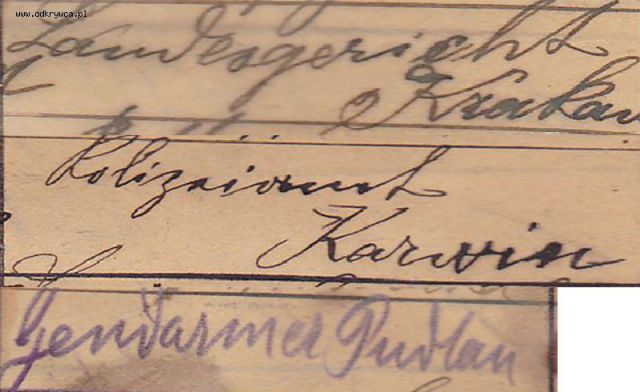 www.odkrywca.pl
Landesgericht
Krakau
Polizeiamt
Karwin
Gendarmer Pudlau